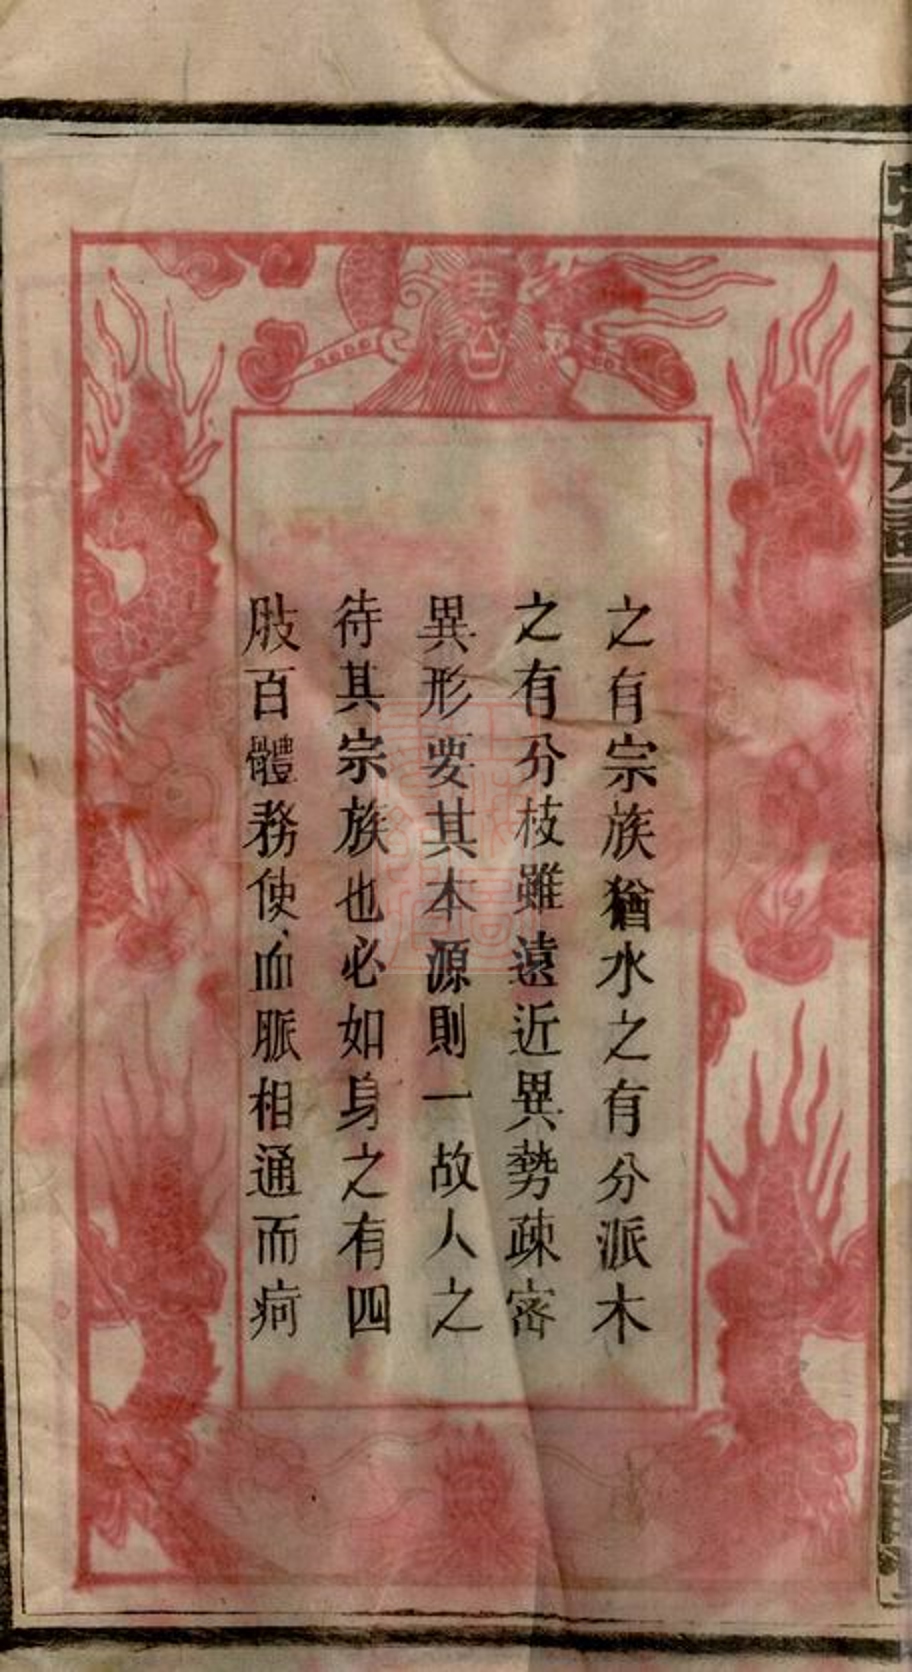 之有宗族猶水之有分派木
之有分枝雖遠近異勢疎宻
異形要其本源則一故人之
待其宗族也必如身之有四
肢百體務使血脈相通而疴